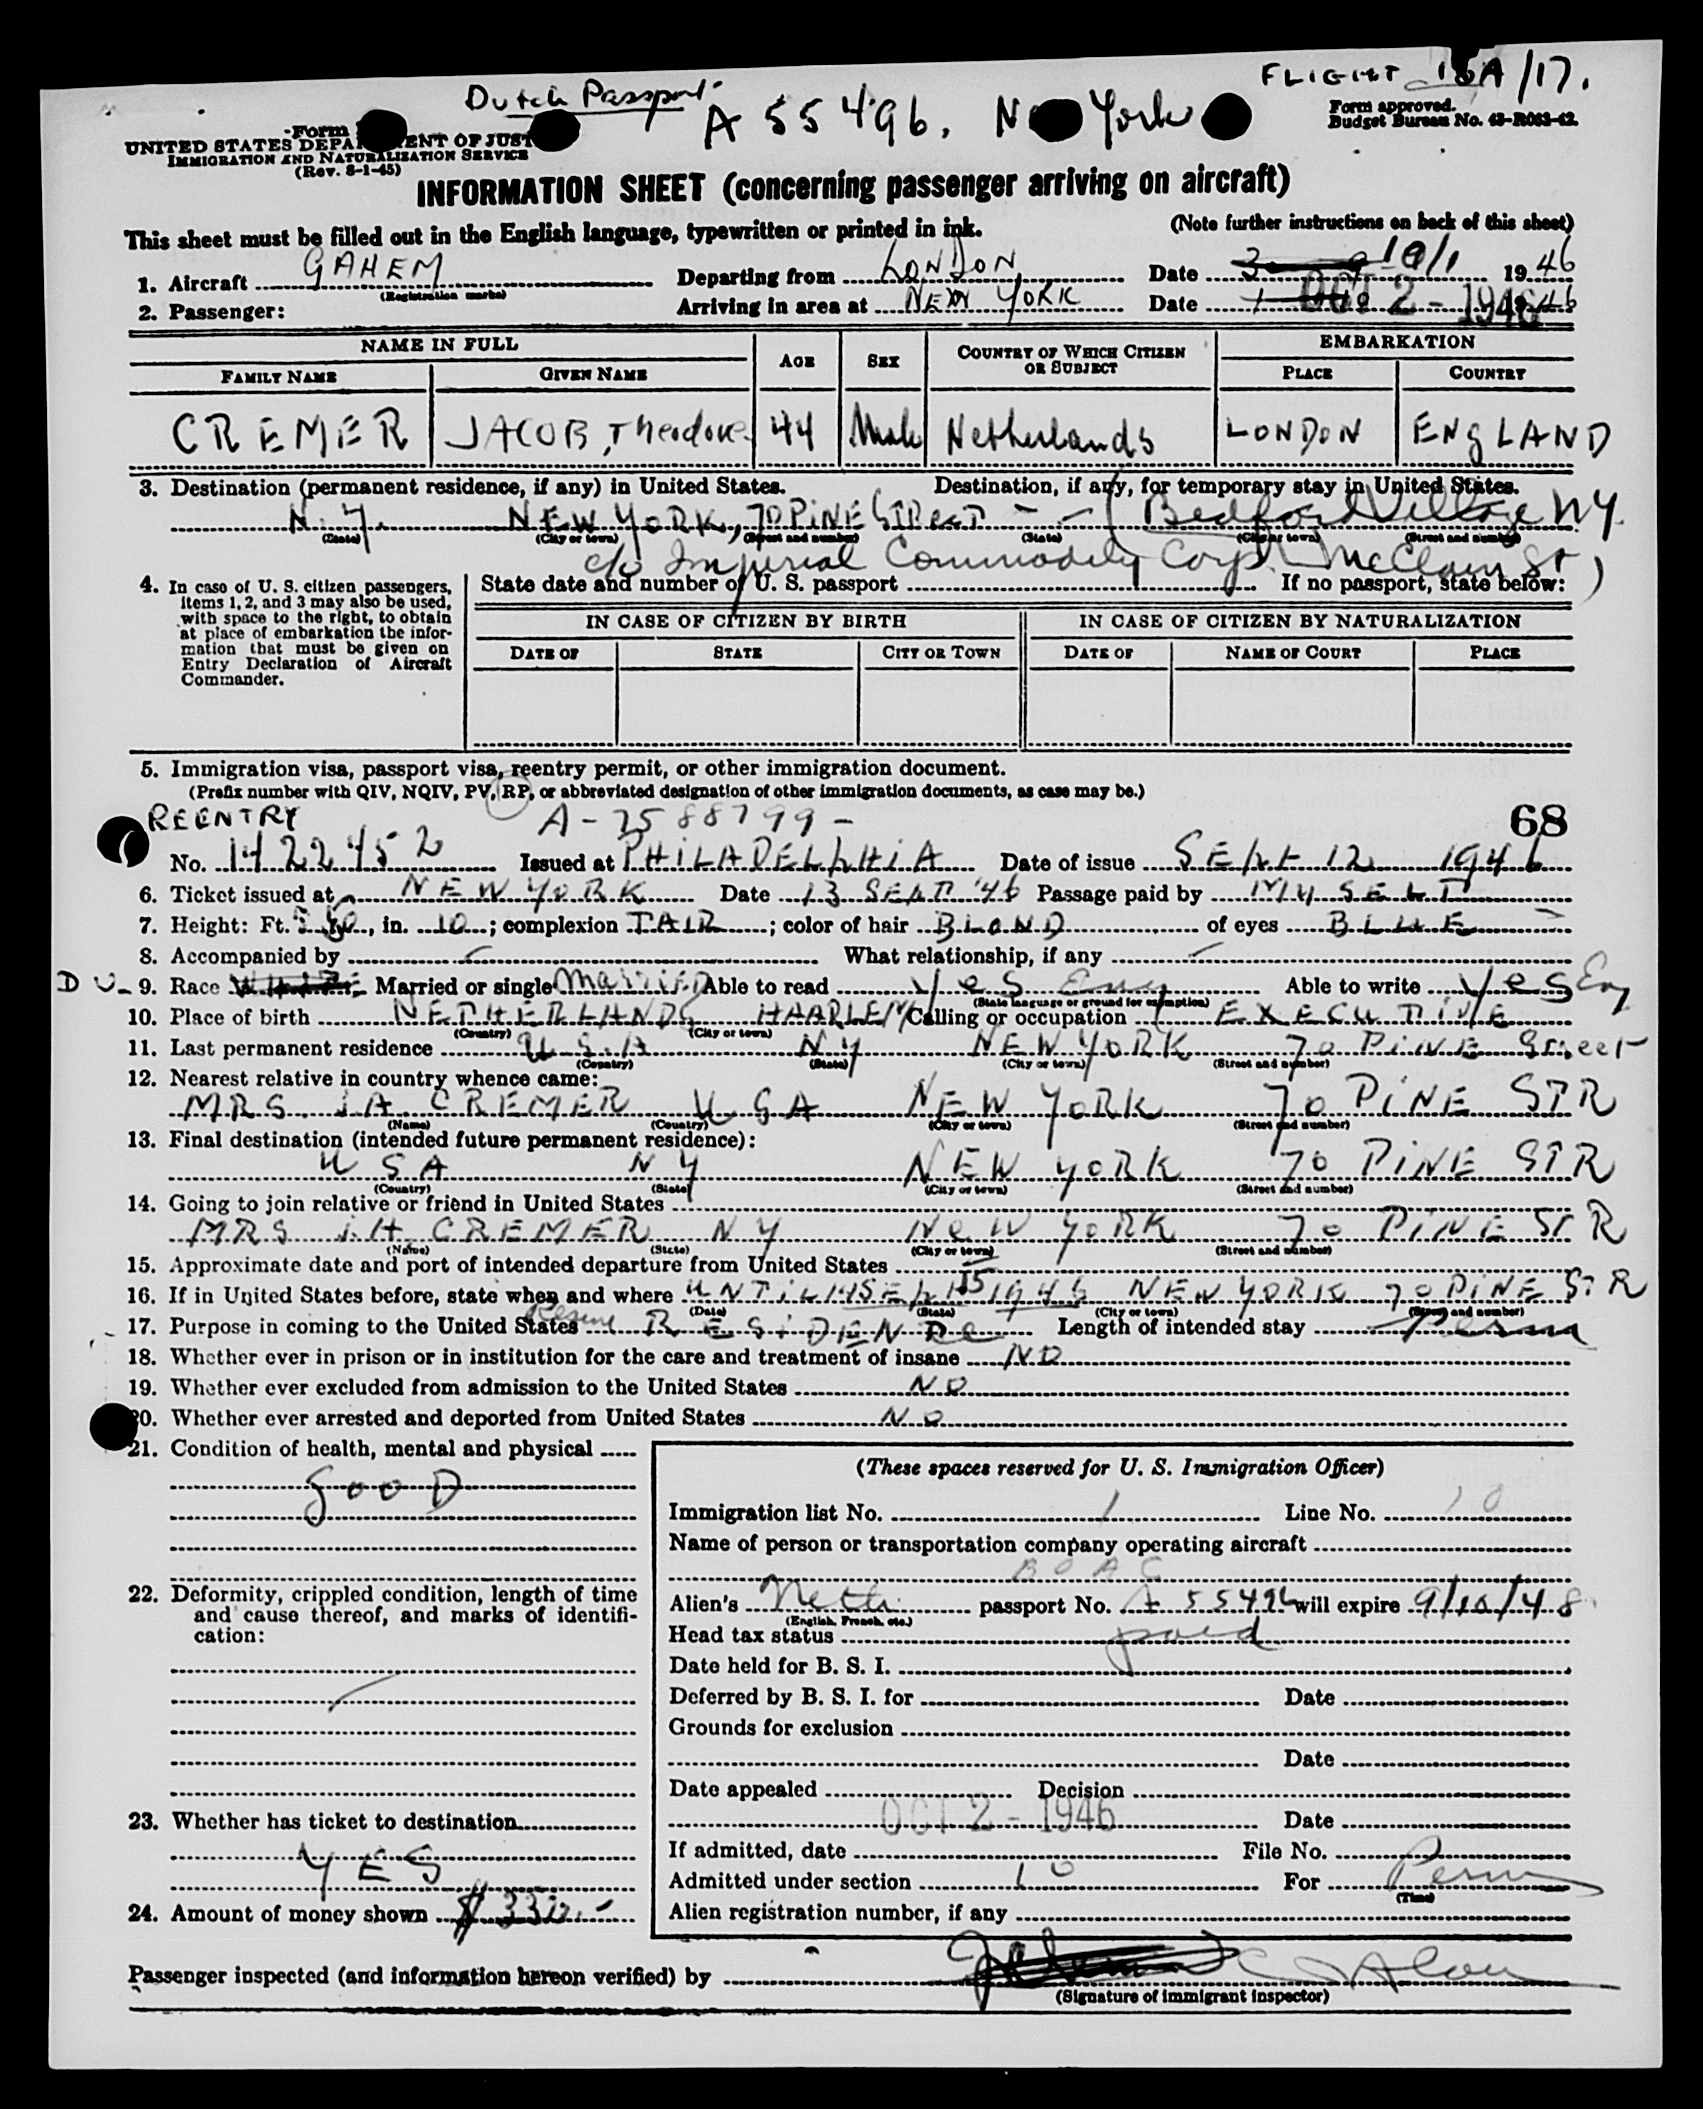 FLIGHT 18A/17.
Dutch Passport
A 55496. New York
Form approved.
Budget Bureau No. 43-R083-42.
Form
UNITED STATES DEPARTMENT OF JUST
IMMIGRATION AND NATURALIZATION SERVICE
(Rev. 8-1-45)
INFORMATION SHEET (concerning passenger arriving on aircraft)
This sheet must be filled out in the English language, typewritten or printed in ink.
(Note further instructions on back of this sheet)
1. Aircraft GAHEM Departing from LONDON Date 10/1 1946
(Registration marks)
2. Passenger: Arriving in area at NEW YORK Date OCT 2 - 1946 1946
NAME IN FULL AGE SEX COUNTRY OF WHICH CITIZEN OR SUBJECT EMBARKATION
FAMILY NAME GIVEN NAME PLACE COUNTRY
CREMER JACOB, Theodore 44 Male Netherlands LONDON ENGLAND
3. Destination (permanent residence, if any) in United States. Destination, if any, for temporary stay in United States.
N.Y. NEW YORK, 70 PINE STReeT - - (Bedford Village NY.
(State) (City or town) (Street and number) (State) (City or town) (Street and number)
c/o Imperial Commodity Corp. McClain St)
4. In case of U. S. citizen passengers, items 1, 2, and 3 may also be used, with space to the right, to obtain at place of embarkation the information that must be given on Entry Declaration of Aircraft Commander.
State date and number of U. S. passport If no passport, state below:
IN CASE OF CITIZEN BY BIRTH IN CASE OF CITIZEN BY NATURALIZATION
DATE OF STATE CITY OR TOWN DATE OF NAME OF COURT PLACE
5. Immigration visa, passport visa, reentry permit, or other immigration document.
(Prefix number with QIV, NQIV, PV, RP, or abbreviated designation of other immigration documents, as case may be.)
REENTRY A-7588799- 68
No. 1422452 Issued at PHILADELPHIA Date of issue SEPT 12 1946
6. Ticket issued at NEW YORK Date 13 SEPT '46 Passage paid by MYSELF
7. Height: Ft. , in. 10; complexion FAIR; color of hair BLOND of eyes BLUE
8. Accompanied by What relationship, if any
DU- 9. Race WHITE Married or single MARRIED Able to read Yes Eng Able to write Yes Eng
(State language or ground for exemption)
10. Place of birth NETHERLANDS HAARLEM Calling or occupation EXECUTIVE
(Country) (City or town)
11. Last permanent residence U.S.A NY NEW YORK 70 PINE Street
(Country) (State) (City or town) (Street and number)
12. Nearest relative in country whence came:
MRS. CREMER USA NEW YORK 70 PINE STR
(Name) (Country) (City or town) (Street and number)
13. Final destination (intended future permanent residence):
USA NY NEW YORK 70 PINE STR
(Country) (State) (City or town) (Street and number)
14. Going to join relative or friend in United States
MRS CREMER NY NeW YORK 70 PINE STR
(Name) (State) (City or town) (Street and number)
15. Approximate date and port of intended departure from United States
16. If in United States before, state when and where UNTIL SEPT 15 1946 NEW YORK 70 PINE STR
(Date) (State) (City or town) (Street and number)
17. Purpose in coming to the United States Resume RESIDENCE Length of intended stay Perm
18. Whether ever in prison or in institution for the care and treatment of insane NO
19. Whether ever excluded from admission to the United States NO
20. Whether ever arrested and deported from United States NO
21. Condition of health, mental and physical
GOOD
22. Deformity, crippled condition, length of time and cause thereof, and marks of identification:
23. Whether has ticket to destination
YES
24. Amount of money shown
(These spaces reserved for U. S. Immigration Officer)
Immigration list No. 1 Line No. 10
Name of person or transportation company operating aircraft
BOAC
Alien's Neth. passport No. A 55496 will expire 9/10/48
(English, French, etc.)
Head tax status paid
Date held for B. S. I.
Deferred by B. S. I. for Date
Grounds for exclusion
Date
Date appealed Decision
OCT 2 - 1946 Date
If admitted, date File No.
Admitted under section 10 For Perm
(Time)
Alien registration number, if any
Passenger inspected (and information hereon verified) by
(Signature of immigrant inspector)